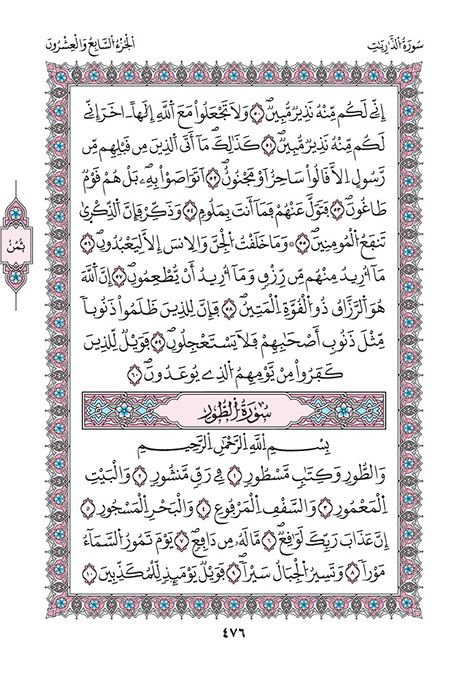 سُورَةُ الذَّارِيَٰتِ
الجُزْءُ السَّابِعُ وَالْعِشْرُونَ
إِنِّے لَكُم مِّنْهُ نَذِيرٞ مُّبِينٞۖ ٥٠ وَلَا تَجْعَلُواْ مَعَ اَ۬للَّهِ إِلَٰهاً اٰخَرَ إِنِّے
لَكُم مِّنْهُ نَذِيرٞ مُّبِينٞۖ ٥١ كَذَٰلِكَۖ مَآ أَتَى اَ۬لذِينَ مِن قَبْلِهِم مِّن
رَّسُولٍ اِلَّا قَالُواْ سَاحِرٌ اَوْ مَجْنُونٌۖ ٥٢ اَتَوَاصَوْاْ بِهِۦۖ بَلْ هُمْ قَوْمٞ
طَاغُونَۖ ٥٣ فَتَوَلَّ عَنْهُمْ فَمَآ أَنتَ بِمَلُومٖۖ ٥٤ وَذَكِّرْ فَإِنَّ اَ۬لذِّكْر۪يٰ
تَنفَعُ اُ۬لْمُومِنِينَۖ ٥٥ وَمَا خَلَقْتُ اُ۬لْجِنَّ وَالِانسَ إِلَّا لِيَعْبُدُونِۖ ٥٦
مَآ أُرِيدُ مِنْهُم مِّن رِّزْقٖ وَمَآ أُرِيدُ أَنْ يُّطْعِمُونِۖ ٥٧ إِنَّ اَ۬للَّهَ
هُوَ اَ۬لرَّزَّاقُ ذُو اُ۬لْقُوَّةِ اِ۬لْمَتِينُۖ ٥٨ فَإِنَّ لِلذِينَ ظَلَمُواْ ذَنُوباٗ
مِّثْلَ ذَنُوبِ أَصْحَٰبِهِمْ فَلَا يَسْتَعْجِلُونِۖ ٥٩ فَوَيْلٞ لِّلذِينَ
كَفَرُواْ مِنْ يَّوْمِهِمُ اُ۬لذِے يُوعَدُونَۖ ٦٠
ثُمُنٌ
سُورَةُ الطُّورِ
بِسْمِ اِ۬للَّهِ اِ۬لرَّحْمَٰنِ اِ۬لرَّحِيمِ
وَالطُّورِ وَكِتَٰبٖ مَّسْطُورٖ ١ فِے رَقّٖ مَّنشُورٖ ٢ وَالْبَيْتِ
اِ۬لْمَعْمُورِ ٣ وَالسَّقْفِ اِ۬لْمَرْفُوعِ ٤ وَالْبَحْرِ اِ۬لْمَسْجُورِ ٥
إِنَّ عَذَابَ رَبِّكَ لَوَٰقِعٞ ٦ مَّا لَهُۥ مِن دَافِعٖۖ ٧ يَوْمَ تَمُورُ اُ۬لسَّمَآءُ
مَوْراٗ ٨ وَتَسِيرُ اُ۬لْجِبَالُ سَيْراٗۖ ٩ فَوَيْلٞ يَوْمَئِذٖ لِّلْمُكَذِّبِينَ ١٠
٤٧٦